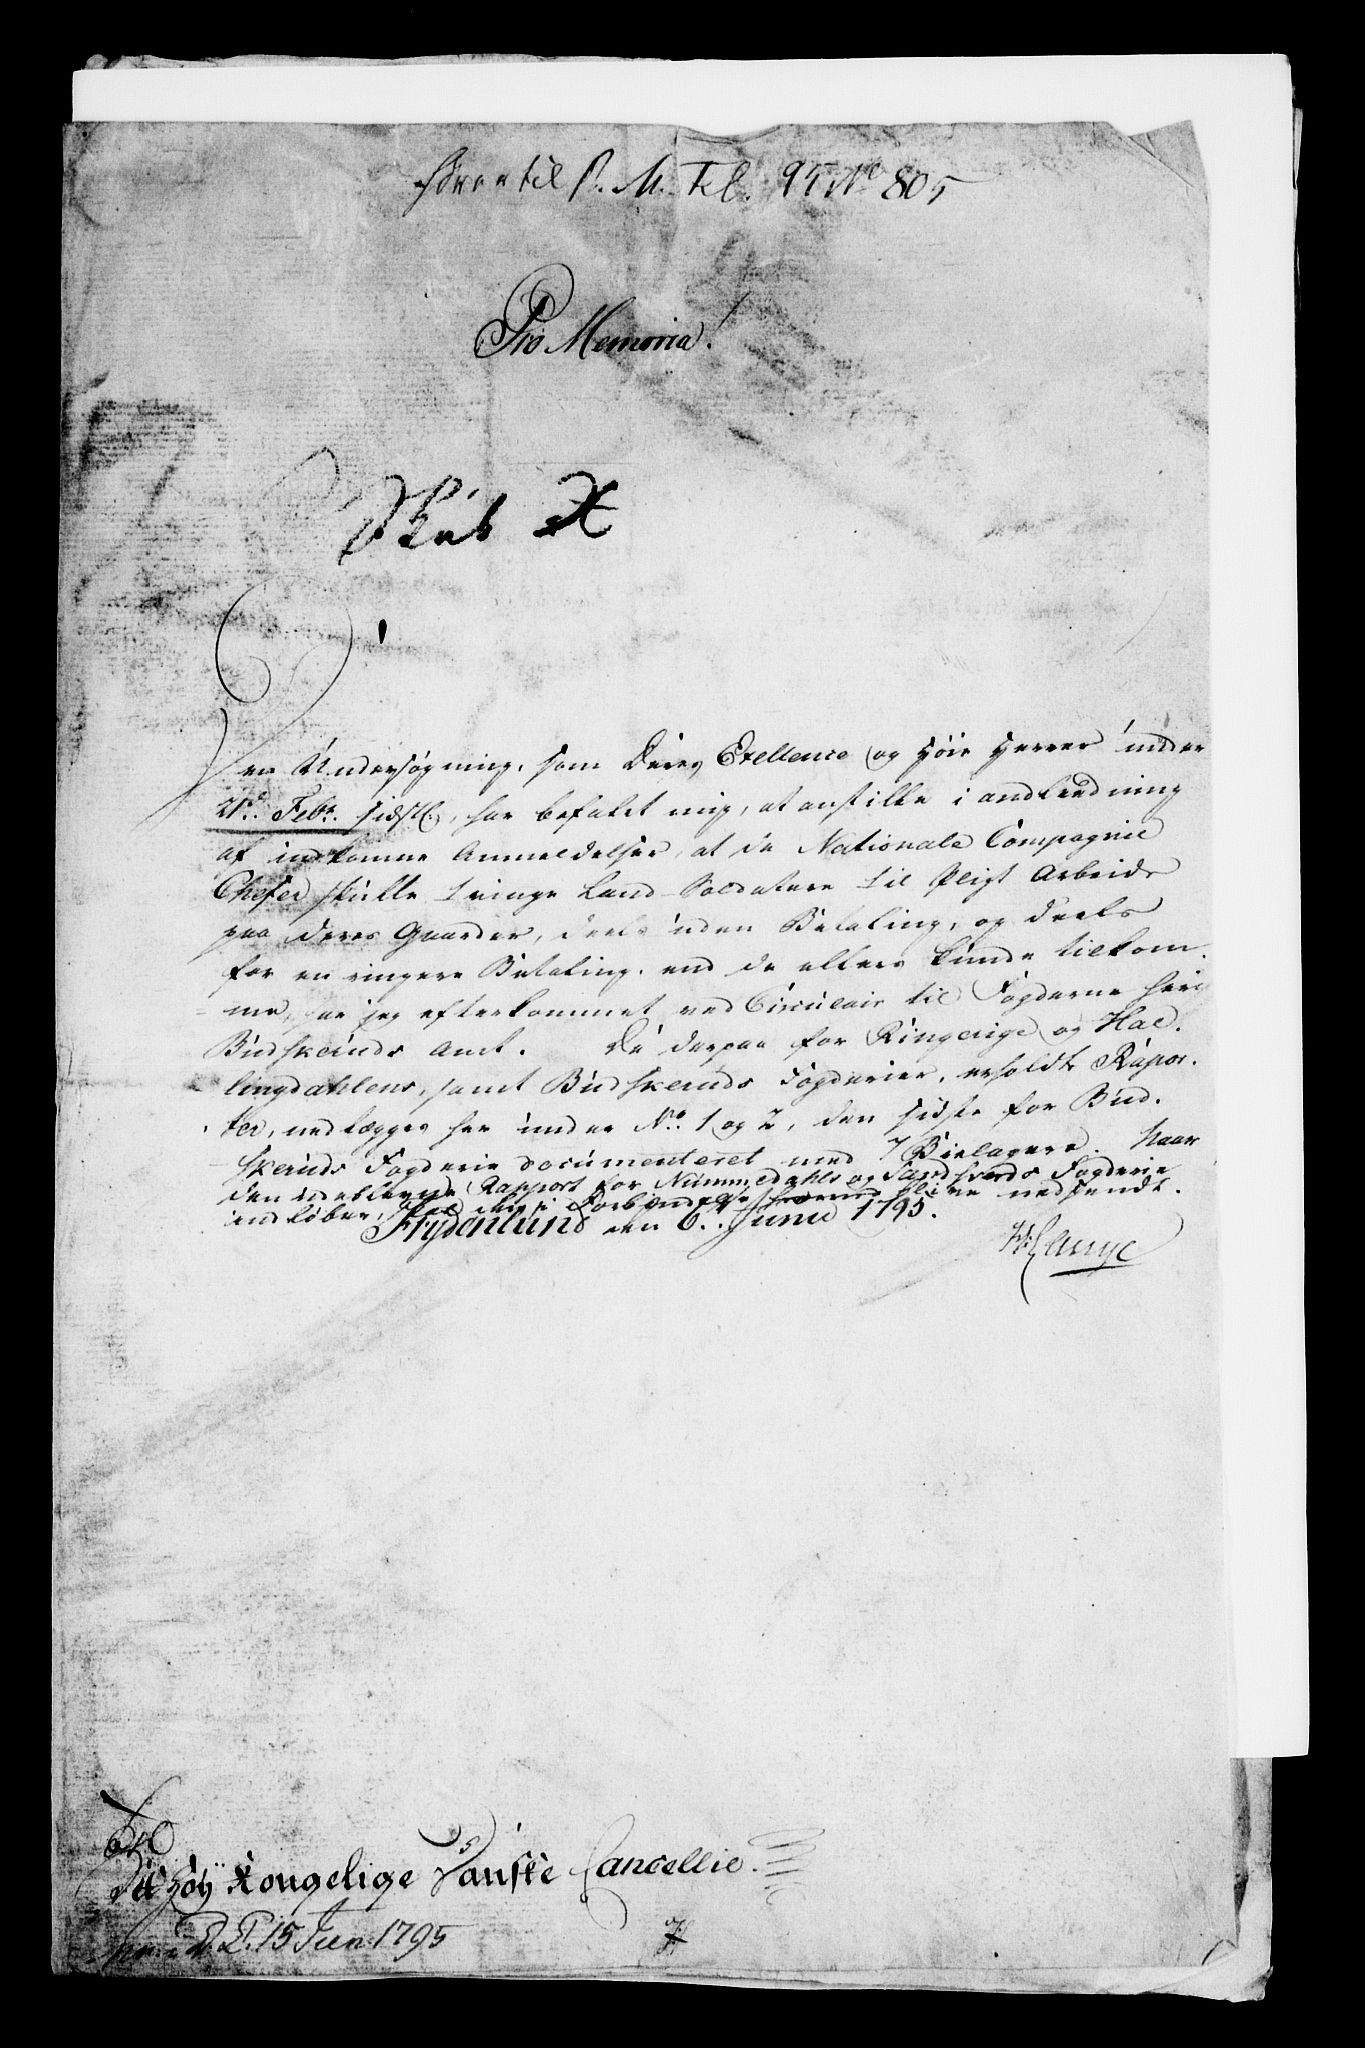 Svar til P. M. Feb. 95 No 805
Pro Memoria!
Skab X
Den Undersøgning, som Deres Exellence og Høie Herrer under
21d. Febr. sidstl., har befalet mig, at anstille i andleedning
af indkomne Anmeldelser, at de Nationale Compagnie
Chefer skulle tvinge Land-Soldatere til Pligt Arbeide
paa deres Gaarder, deels uden Betaling, og deels
for en ringere Betaling, end de ellers kunde tilkom-
me, har jeg efterkommet ved Circulair til Fogderne her i
Budskeruds Amt. De derpaa for Ringerige og Hal-
lingdahlens, samt Budskeruds Fogderier, erholdte Rapor-
ter, nedlægges her under No. 1 og 2, den sidste for Bud-
skeruds Fogderie documenteret med 7 Bielagere. Naar
den udeblevne Rapport for Nummedahls og Sandsværds Fogderie
indløber, skal den i Forbindelse hermed blive nedsendt.
Frydenlund den 6t. Junii 1795.
Til
Det Høy Kongelige Danske Cancellie.
D. 15 Jun 1795